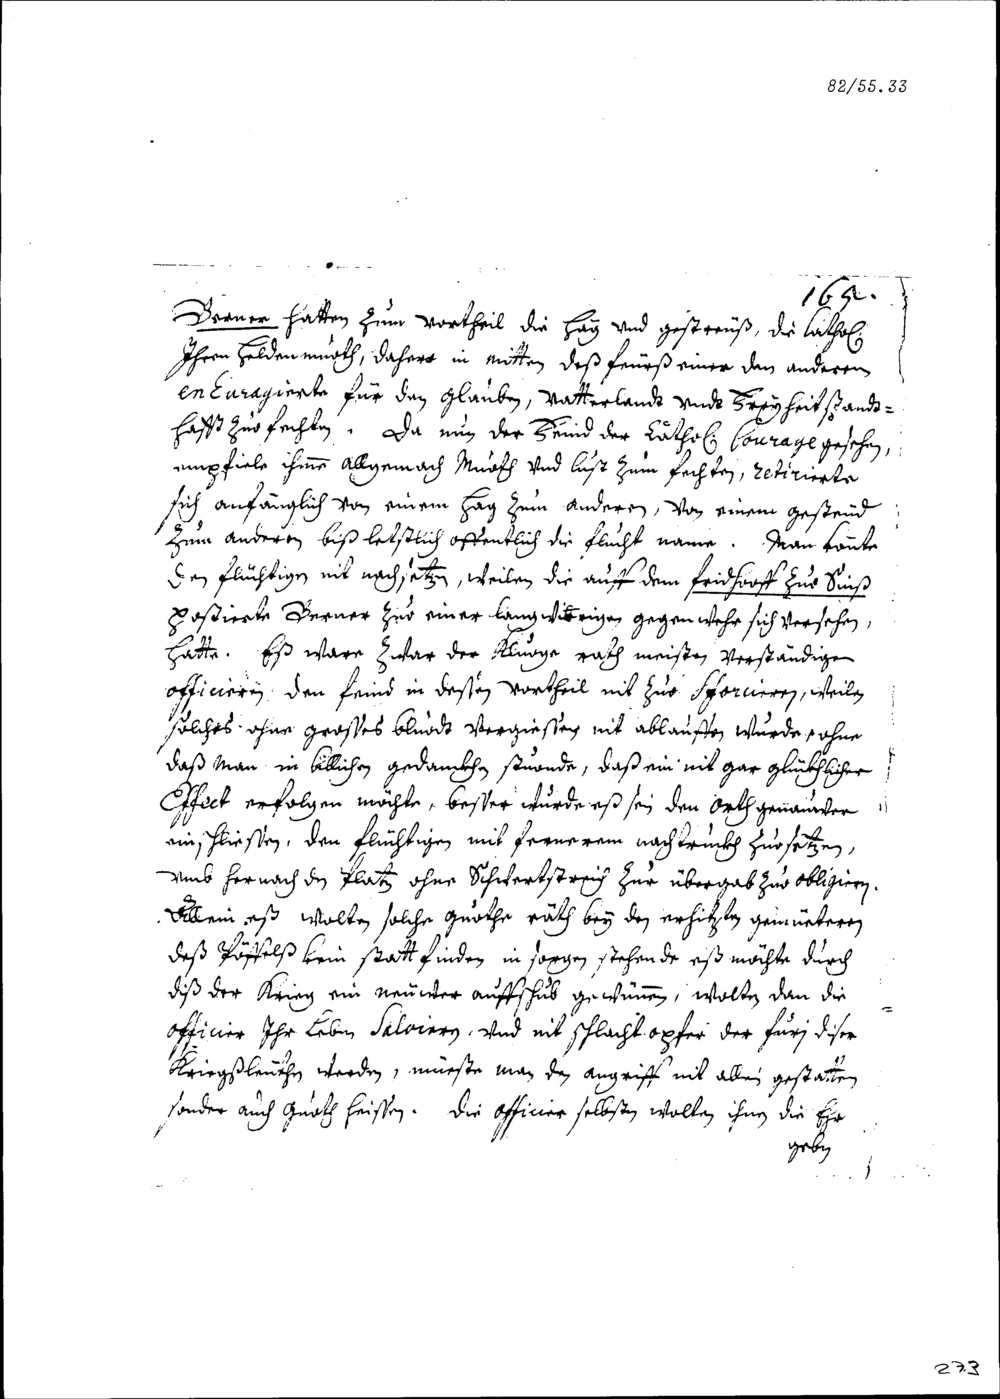 82/55.33
165.
Berner hatten zum vortheil die häg vnd gestreüß, die Cathol:
Ihren heldenmuoth, dahero in mitten deß feürß einer den anderen
enCuragierte für den glauben, vatterlandt vndt Freyheit standt=
hafft zuo fechten. Da nun der Feind der Cathol: Courage gesehen,
empfiele ihme allgemach Muoth vnd lust zum fechten, retirierte
sich anfänglich von einem hag zum anderen, von einem gesteüd
zum anderen biß letstlich offentlich die flucht name. Man konte
den flüchtigen nit nachsetzen, weilen die auff dem fridhoff zuo Sinß
postierte Berner zuo einer langwirigen gegenwehr sich versehen,
hatte. Eß ware zwar der Kluoge rath meisten verständigen
officieren den feind in dessen vortheil nit zuo Fforcieren, weilen
solches ohne grosses bluodt vergiessen nit ablauffen wurde, ohne
daß Man in billichen gedanckhen stuonde, daß ein nit gar glückhlicher
Effect erfolgen möchte, besser wurde eß sein den Orth genauwer
einschliessen, den flüchtigen mit fernerem nachtruckh zuosetzen,
vmb hernach den Platz ohne Schwertstreich zur übergab zuo obligieren.
Allein eß wolten solche guothe räth bey den erhitzten gemüeteren
deß Pöffelß kein statt finden in sorgen stehende eß möchte durch
diß der Krieg ein neüwer auffschub gewünnen, wolten dan die
officier Ihr Leben Salvieren vnd nit schlachtopfer der furj diser
Kriegßleüthen werden, müeste man den angriff nit allein gestatten
sonder auch guoth heissen. Die officier selbsten wolten ihnen die Ehr
geben
273